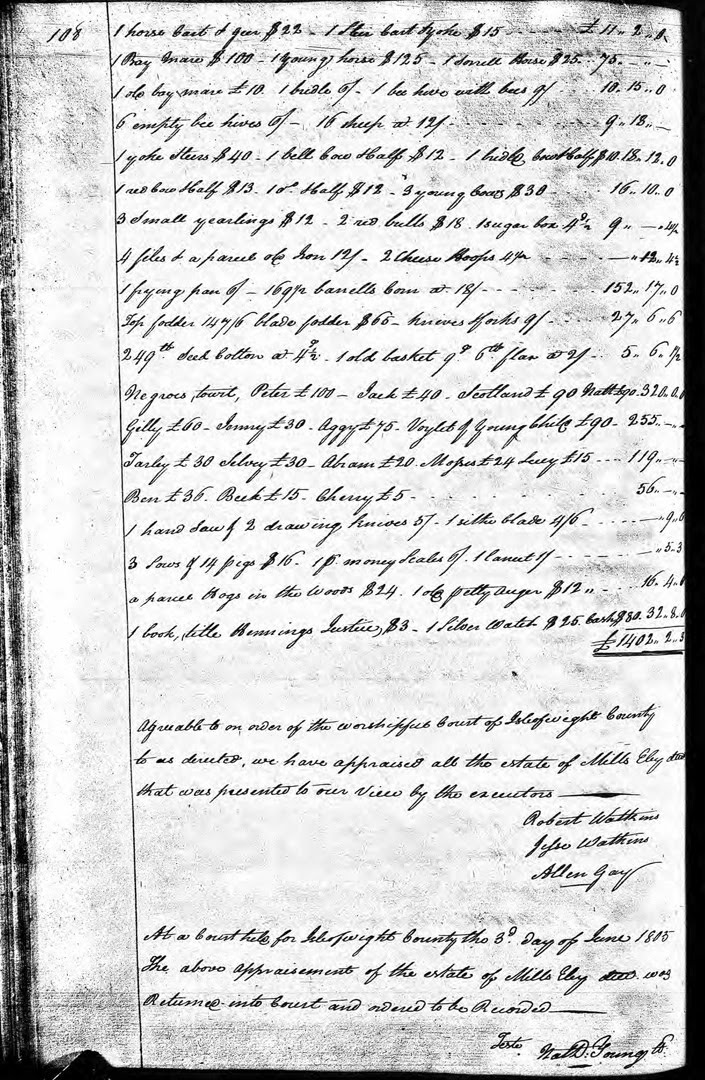 108
1 horse Cart & geer $22 - 1 Steer Cart & yoke $15 - - - - £ 11 " 2 " 0
1 Bay Mare $100 - 1 Young horse $125 - 1 Sorrell Horse $25 - 75 - " -
1 old bay mare £10. 1 bridle 6/ - 1 bee hive with bees 9/ 10. 15 " 0
6 empty bee hives 6/ - 16 sheep at 12/ - - - - 9 " 18 " -
1 yoke Steers $40 - 1 bell Cow & Calf $12 - 1 bridle Cow & Calf $10. 18 " 12. 0
1 red Cow & Calf $13 1 do. & Calf $12 - 3 young Cows $30 16 " 10. 0
3 Small yearlings $12 - 2 red bulls $18. 1 sugar box 4d½ 9 " - " 4½
4 files & a parcel old Iron 12/ - 2 Cheese Hoops 4½ - - - - " 12 " 4½
1 frying pan 6/ - 169½ barrells Corn at 18/ - - - - 152 " 17 " 0
Top fodder 147/6 blade fodder $65 - knives & forks 9/ 27 " 6 " 6
249 lb Seed Cotton at 4d½ - 1 old basket 9d 6 lb flax at 2/ - 5 " 6 " 1½
Negroes, towit, Peter £100 - Jack £40 - Scotland £90 Natt £90. 320 " 0. 0
Gilly £60 - Jenny £30 - Aggy £75 - Voylet & Young Child £90 - 255 - " -
Tarley £30 Selvey £30 - Abram £20. Moses £24 Lucy £15 - - - 119 " - " -
Ben £36. Beck £15 - Cherry £5 - - - - 56 - " -
1 hand Saw & 2 drawing knives 5/ - 1 sithe blade 4/6 - - - - " 9 " 6
3 Sows & 14 pigs $16 - 1 p. money Scales 6/. 1 lancet 1/ - - - - " 5 " 3
a parcel Hogs in the woods $24. 1 old petty auger $12 " - - - 16 " 4 " 0
1 book, title Hennings Justice, $3 - 1 Silver Watch $25. Cash $80. 32 " 8. 0
£1402 " 2 " 3
Agreable to an order of the worshipfull Court of Isleofwight County
to us directed, we have appraised all the estate of Mills Eley decd
that was presented to our view by the executors
Robert Watkins
Jesse Watkins
Allen Gay
At a Court held for Isleofwight County the 3d. day of June 1805
The above appraisement of the estate of Mills Eley decd. was
Returned into Court and ordered to be Recorded
Teste
Nathl. Young Ck.